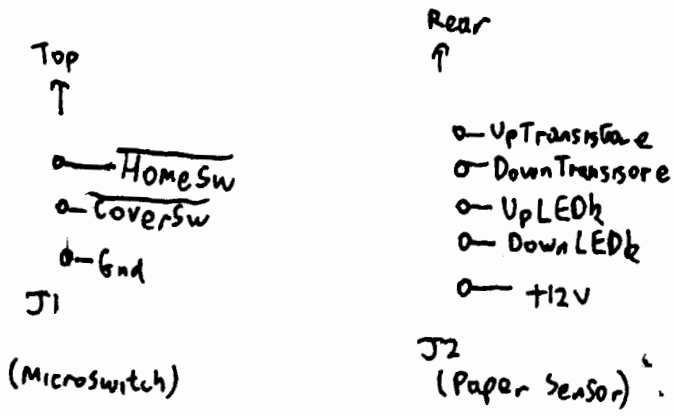 Top
HomeSw
CoverSw
Gnd
J1
(Microswitch)
Rear
UpTransistore
DownTransisore
UpLEDk
DownLEDk
+12V
J2
(Paper Sensor)